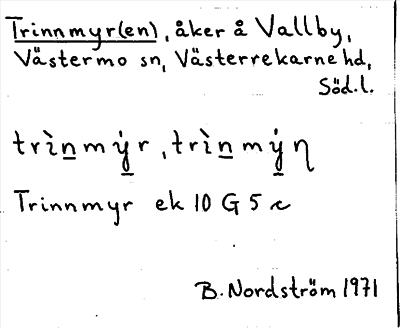 Trinnmyr(en), åker å Vallby,
Västermo sn, Västerrekarne hd,
Söd.l.
trìn̲mẏ̲r, trìn̲mẏ̲η
Trinnmyr ek 10 G 5 c
B. Nordström 1971